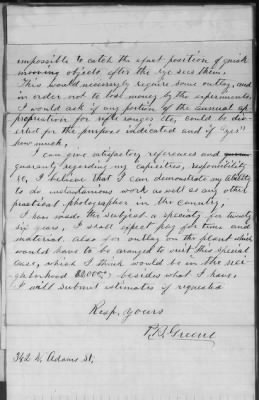 impossible to catch the exact position of quick
moving objects after the eye sees them.
This would necessarily require some outlay, and
in order not to lose money by the experiments
I would ask if any portion of the annual ap-
propriation for rifle ranges etc, could be div-
erted for the purpose indicated and if "yes"
how much.
I can give satisfactory references and
guaranty regarding my capacities, responsibility
&c, I believe that I can demonstrate my ability
to do instantaneous work as well as any other
practical photographer in the country,
I have made the subject a specialty for twenty
six years, I shall expect pay for time and
material. Also for outlay on the plant which
would have to be arranged to suit this special
case, which I think would be in the nei
gborhood besides what I have.
I will submit estimates if requested
Resp. yours
P.B. Greene
342 W. Adams St,